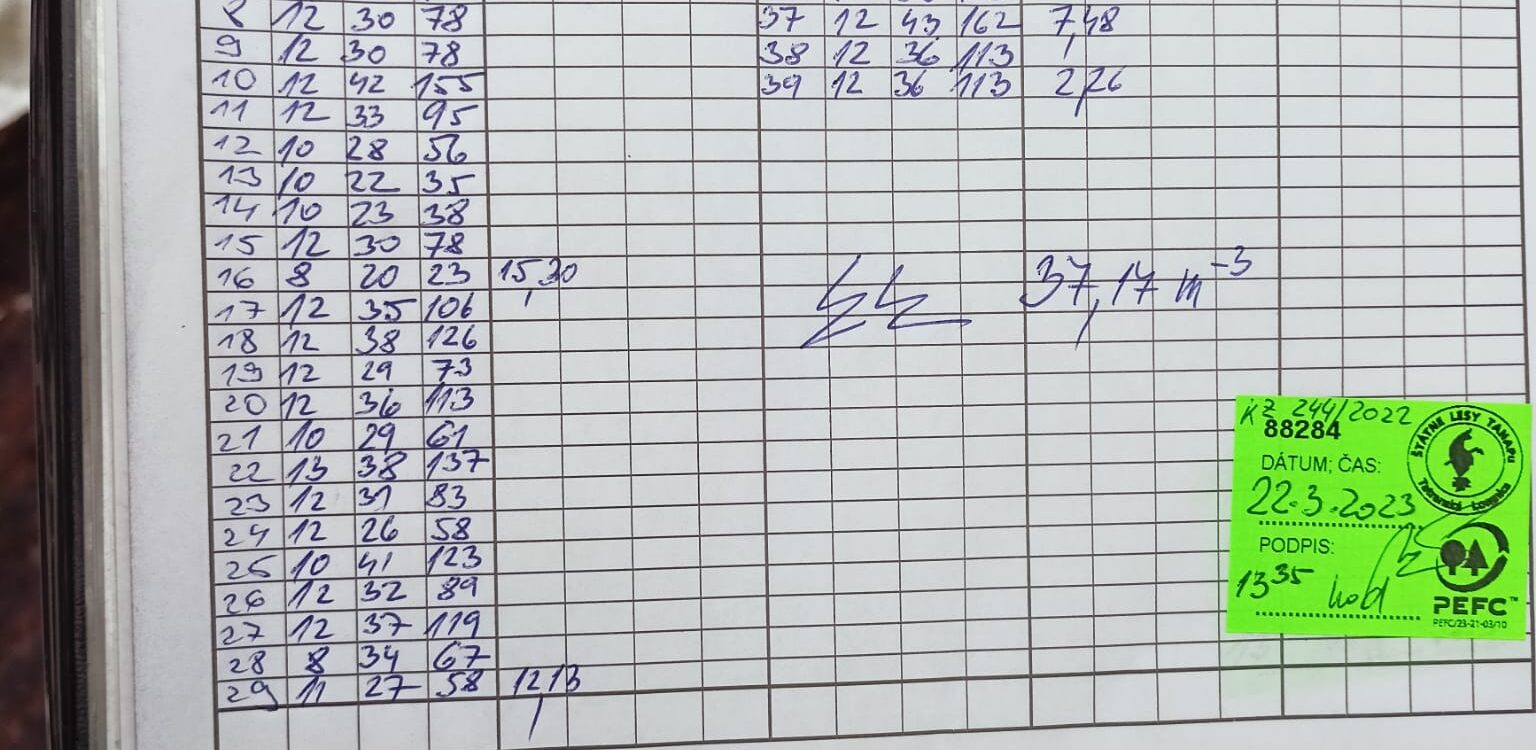 8 12 30 78
9 12 30 78
10 12 42 155
11 12 33 95
12 10 28 56
13 10 22 35
14 10 23 38
15 12 30 78
16 8 20 23 15,30
17 12 35 106
18 12 38 126
19 12 29 73
20 12 36 113
21 10 29 61
22 13 38 137
23 12 31 83
24 12 26 58
25 10 41 123
26 12 32 89
27 12 37 119
28 8 34 67
29 11 27 58 12,13
37 12 43 162 7,48
38 12 36 113
39 12 36 113 2,26
37,17 m-3
KZ 244/2022
88284
DÁTUM; ČAS:
22.3.2023
PODPIS:
13 35 hod
ŠTÁTNE LESY TANAPU
Tatranská Lomnica
PEFC™
PEFC/23-21-03/10